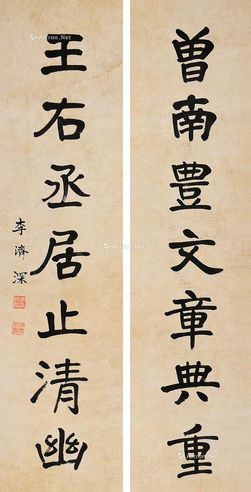 曾南豐文章典重
王右丞居止清幽
李濟深
Artron.Net
Artron.Net